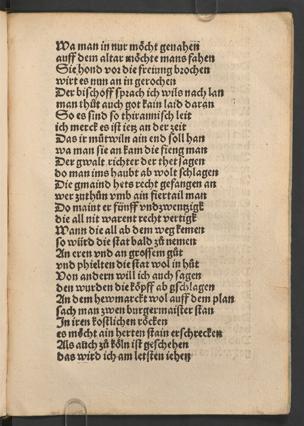 Wa man in nur möcht genahen
auff dem altar möchte mans fahen
Sie hond vor die freiung brochen
wirt es nun an in gerochen
Der bischoff sprach ich wils nach lan
man thůt auch got kain laid daran
So es sind so thirannisch leit
ich merck es ist ietz an der zeit
Das ir můtwiln ain end soll han
wa man sie an kam die fieng man
Der gwalt richter der thet sagen
do man ims haubt ab wolt schlagen
Die gmaind hets recht gefangen an
wer zuthůn vmb ain fiertail man
Do maint er fünff vndzwentzigk
die all nit warent recht vertigk
Wann die all ab dem weg kemen
so würd die stat bald zů nemen
An eren vnd an grossem gůt
vnd phielten die stat wol in hůt
Von andern will ich auch sagen
den wurden die köpff ab gschlagen
An dem hewmarckt wol auff dem plan
sach man zwen burgermaister stan
In iren kostlichen röcken
es möcht ain herten stain erschrecken
Als auch zů köln ist geschehen
das wird ich am letsten iehen